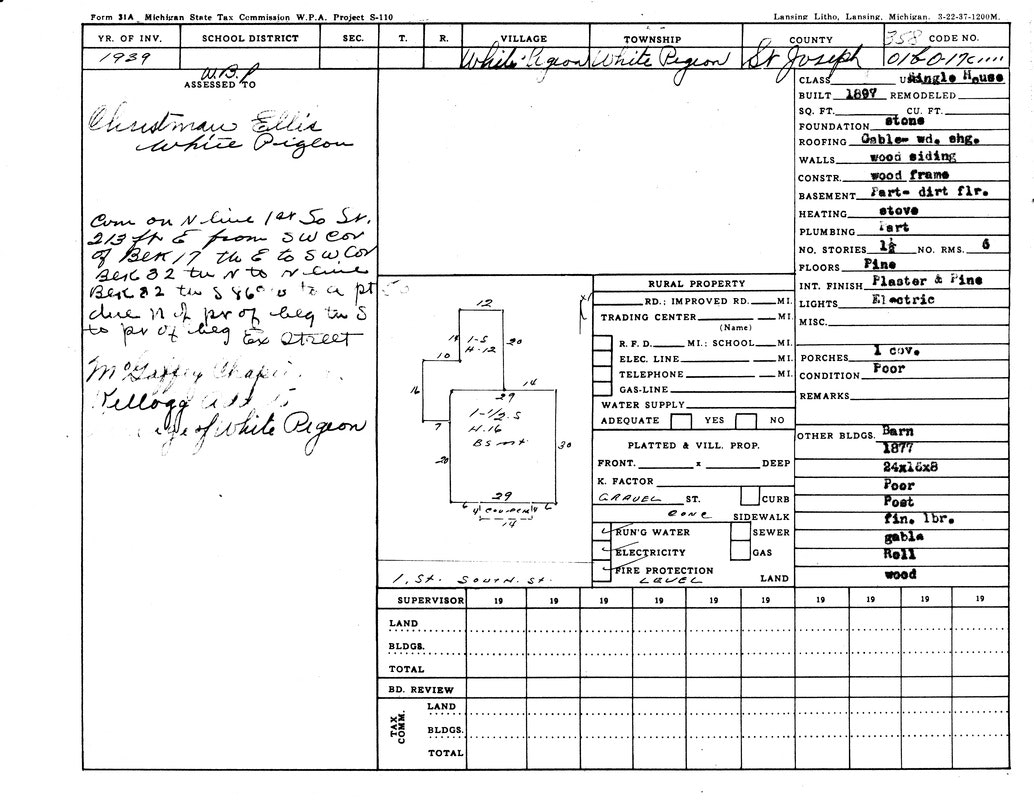 Form 31A Michigan State Tax Commission W.P.A. Project S-110
Lansing Litho, Lansing, Michigan. 3-22-37-1200M.
YR. OF INV. SCHOOL DISTRICT SEC. T. R. VILLAGE TOWNSHIP COUNTY 358 CODE NO.
1939 White Pigeon White Pigeon St Joseph
W.B.P
ASSESSED TO
Christman Ellis
White Pigeon
Com on N line 1st So St.
213 ft E from SW Cor
of Blk 17 th E to SW Cor
Blk 32 th N to N line
Blk 32 th S 86° to a pt
due N of pt of beg th S
to pt of beg Ex Street
McGaffey Chapin
Kellogg
of White Pigeon
CLASS Single House
BUILT 1897 REMODELED
SQ. FT. CU. FT.
FOUNDATION stone
ROOFING Gable- wd. shg.
WALLS wood siding
CONSTR. wood frame
BASEMENT Part- dirt flr.
HEATING stove
PLUMBING Part
NO. STORIES 1½ NO. RMS. 6
FLOORS Pine
INT. FINISH Plaster & Pine
LIGHTS Electric
MISC.
PORCHES 1 cov.
CONDITION Poor
REMARKS
OTHER BLDGS. Barn
1877
24x16x8
Poor
Post
fin. lbr.
gable
Roll
wood
12
14 1-S 20
H-12
10
16 14
29
7 1-1/2 S
H.16
Bsmt
20 30
29
6 4 COVERED 4 6
14
1. ST. SOUTH. ST.
RURAL PROPERTY
RD.; IMPROVED RD. MI.
TRADING CENTER MI.
(Name)
R. F. D. MI.; SCHOOL MI.
ELEC. LINE MI.
TELEPHONE MI.
GAS-LINE
WATER SUPPLY
ADEQUATE YES NO
PLATTED & VILL. PROP.
FRONT. x DEEP
K. FACTOR
GRAVEL ST. CURB
CONC SIDEWALK
RUN'G WATER SEWER
ELECTRICITY GAS
FIRE PROTECTION
LEVEL LAND
SUPERVISOR 19 19 19 19 19 19 19 19 19 19
LAND
BLDGS.
TOTAL
BD. REVIEW
TAX COMM.
LAND
BLDGS.
TOTAL